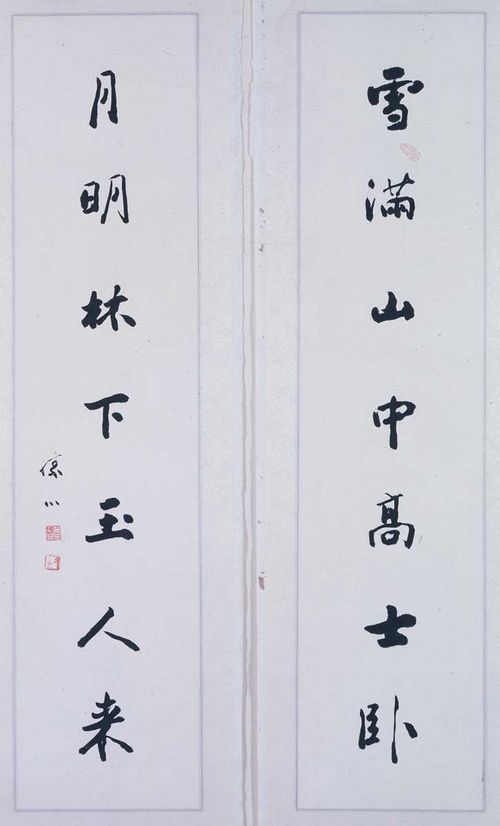 雪滿山中高士卧
月明林下玉人来